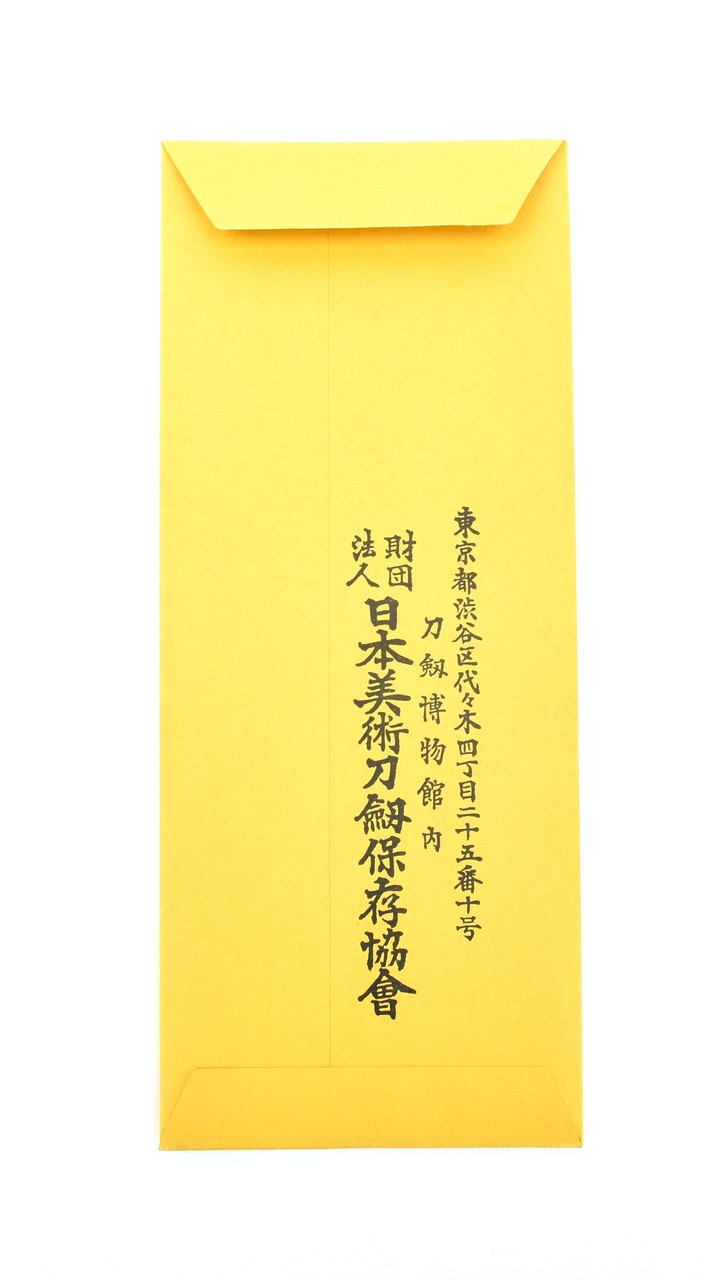 東京都渋谷区代々木四丁目二十五番十号
刀剱博物館内
財団法人日本美術刀剱保存協會